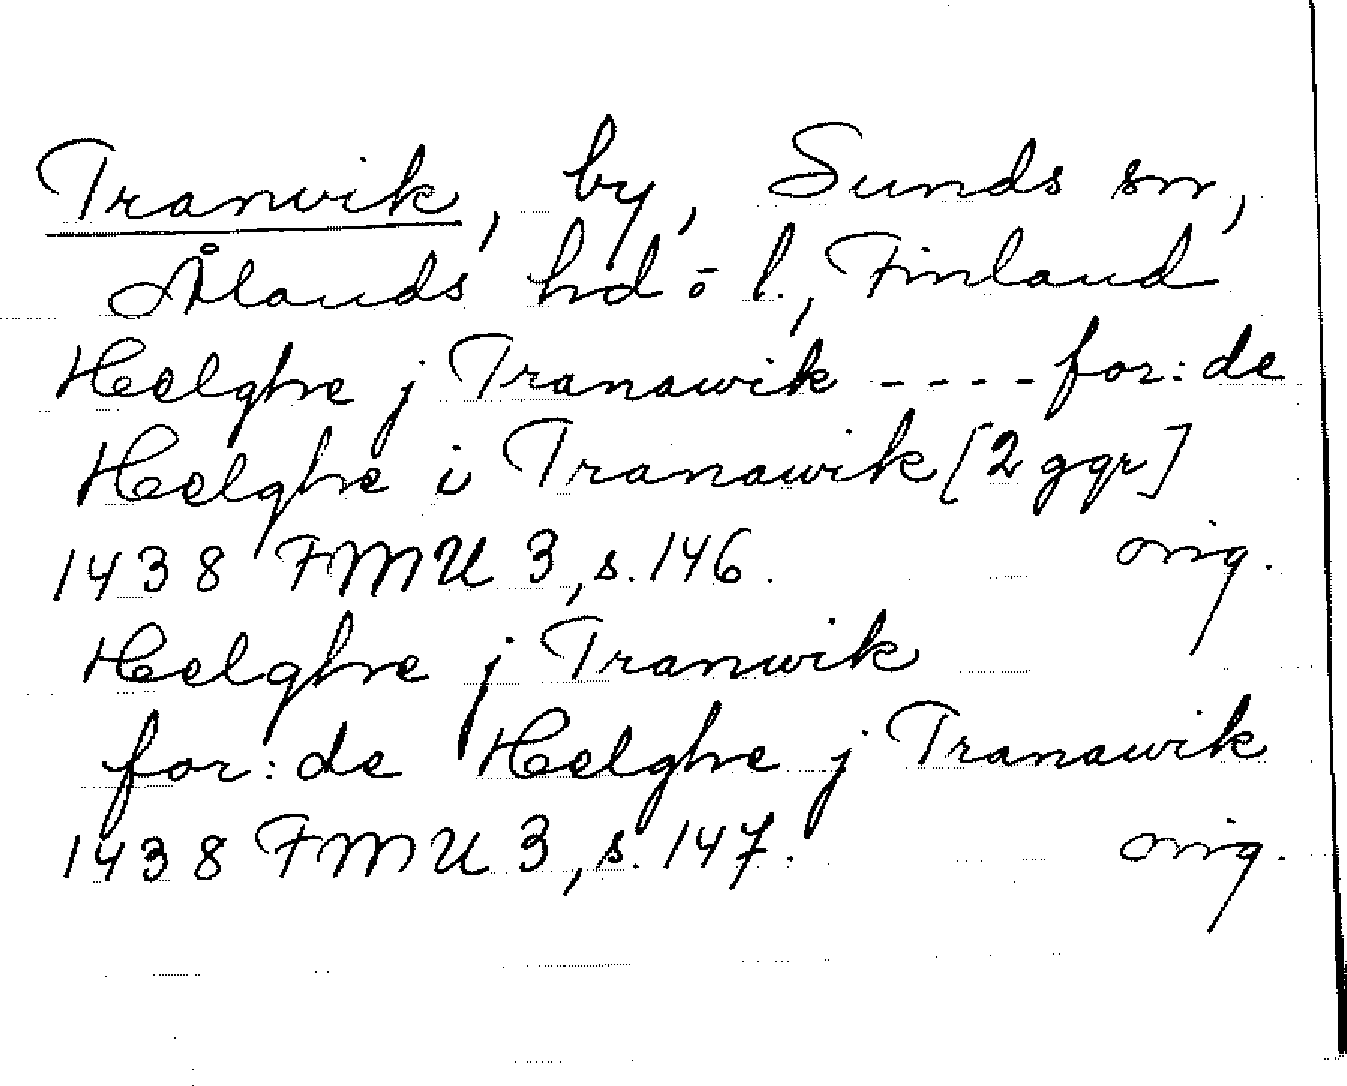 Tranvik, by, Sunds sn,
Ålands hd o l., Finland
Helghe j Tranawik ---- for:de
Helghe i Tranawik [2 ggr]
1438 FMU 3, s. 146. orig.
Helghe j Tranwik
for:de Helghe j Tranawik
1438 FMU 3, s. 147. orig.